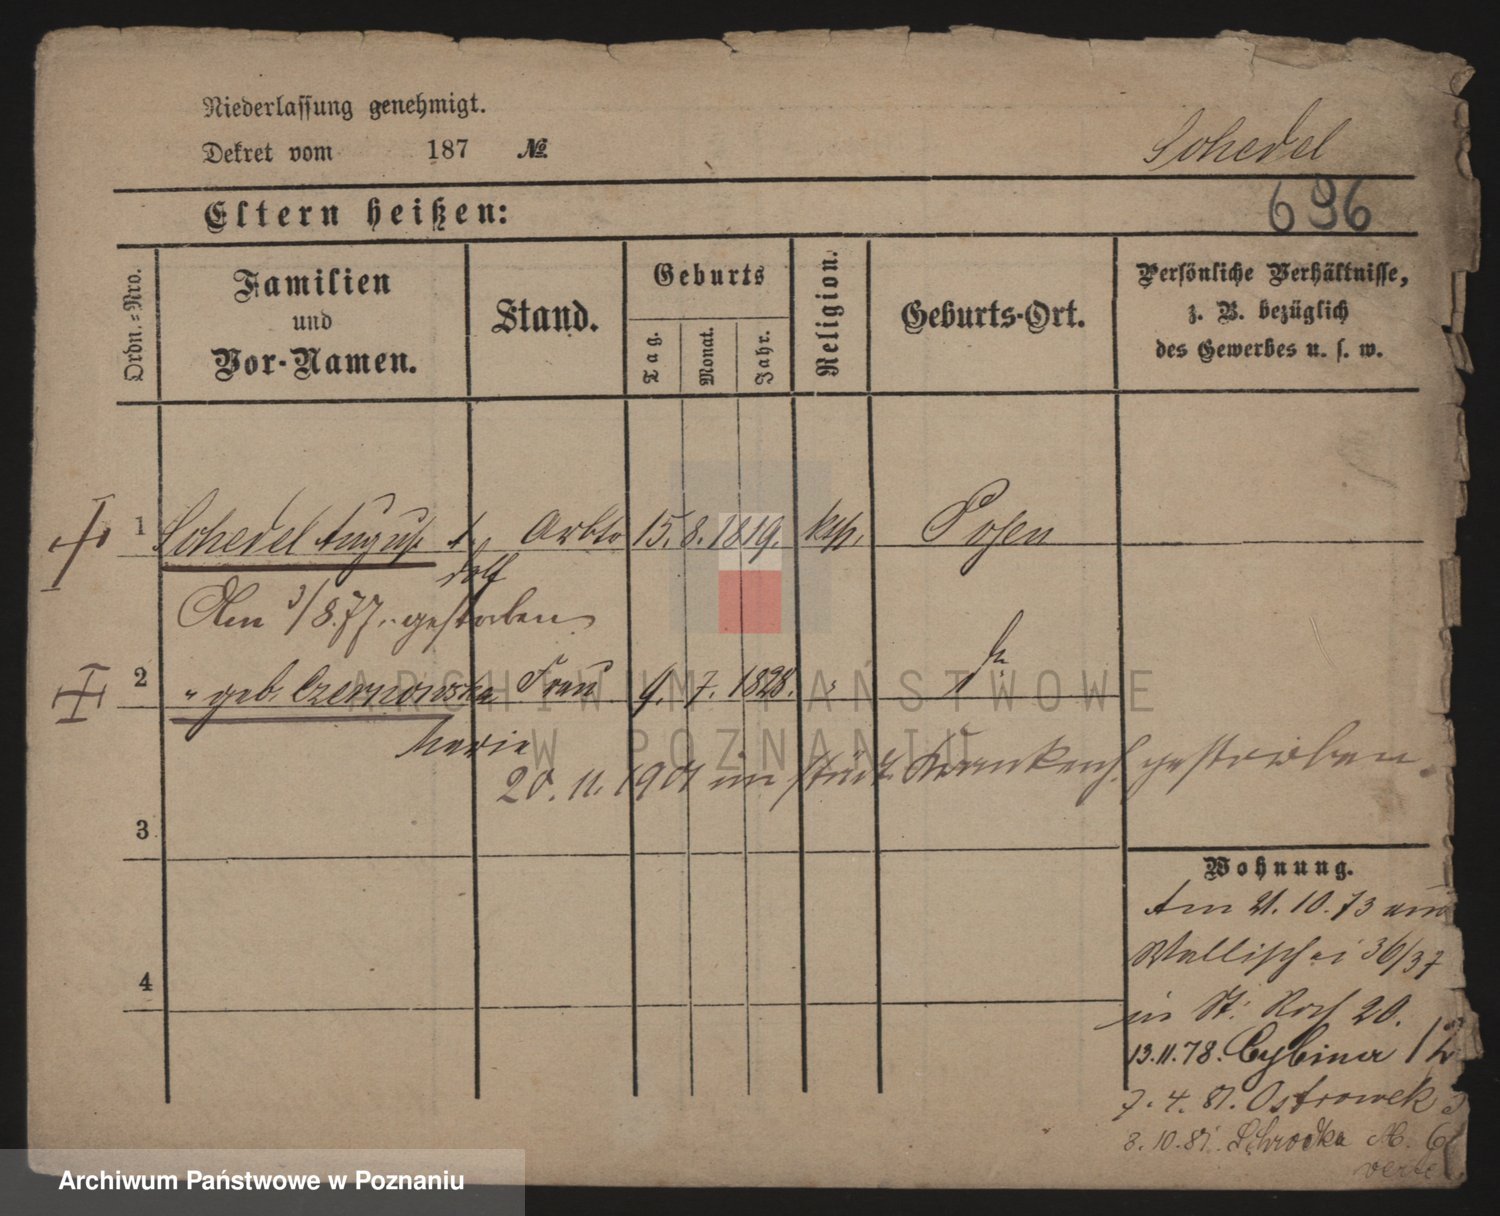 Niederlassung genehmigt.
Dekret vom 187 №
Schedel
696
Eltern heißen:
Ordn.-Nro.
Familien
und
Vor-Namen.
Stand.
Geburts
Tag.
Monat.
Jahr.
Religion.
Geburts-Ort.
Persönliche Verhältnisse,
z. B. bezüglich
des Gewerbes u. s. w.
1 Schedel August Arbtr 15. 8. 1819. kth. Posen
Am 3/8.77. gestorben
2 " geb. Czernowska Frau 9. 7. 1828. " do
Marie
20. 11. 1901 im städt. Krankenh. gestorben.
3
4
Wohnung.
Am 21. 10. 73 aus
Wallischei 36/37
in St. Roch 20.
13. 11. 78. Cybina
7. 4. 81. Ostrowek
8. 10. 81. Schrodka M. 6
verte
ARCHIWUM PAŃSTWOWE
W POZNANIU
Archiwum Państwowe w Poznaniu